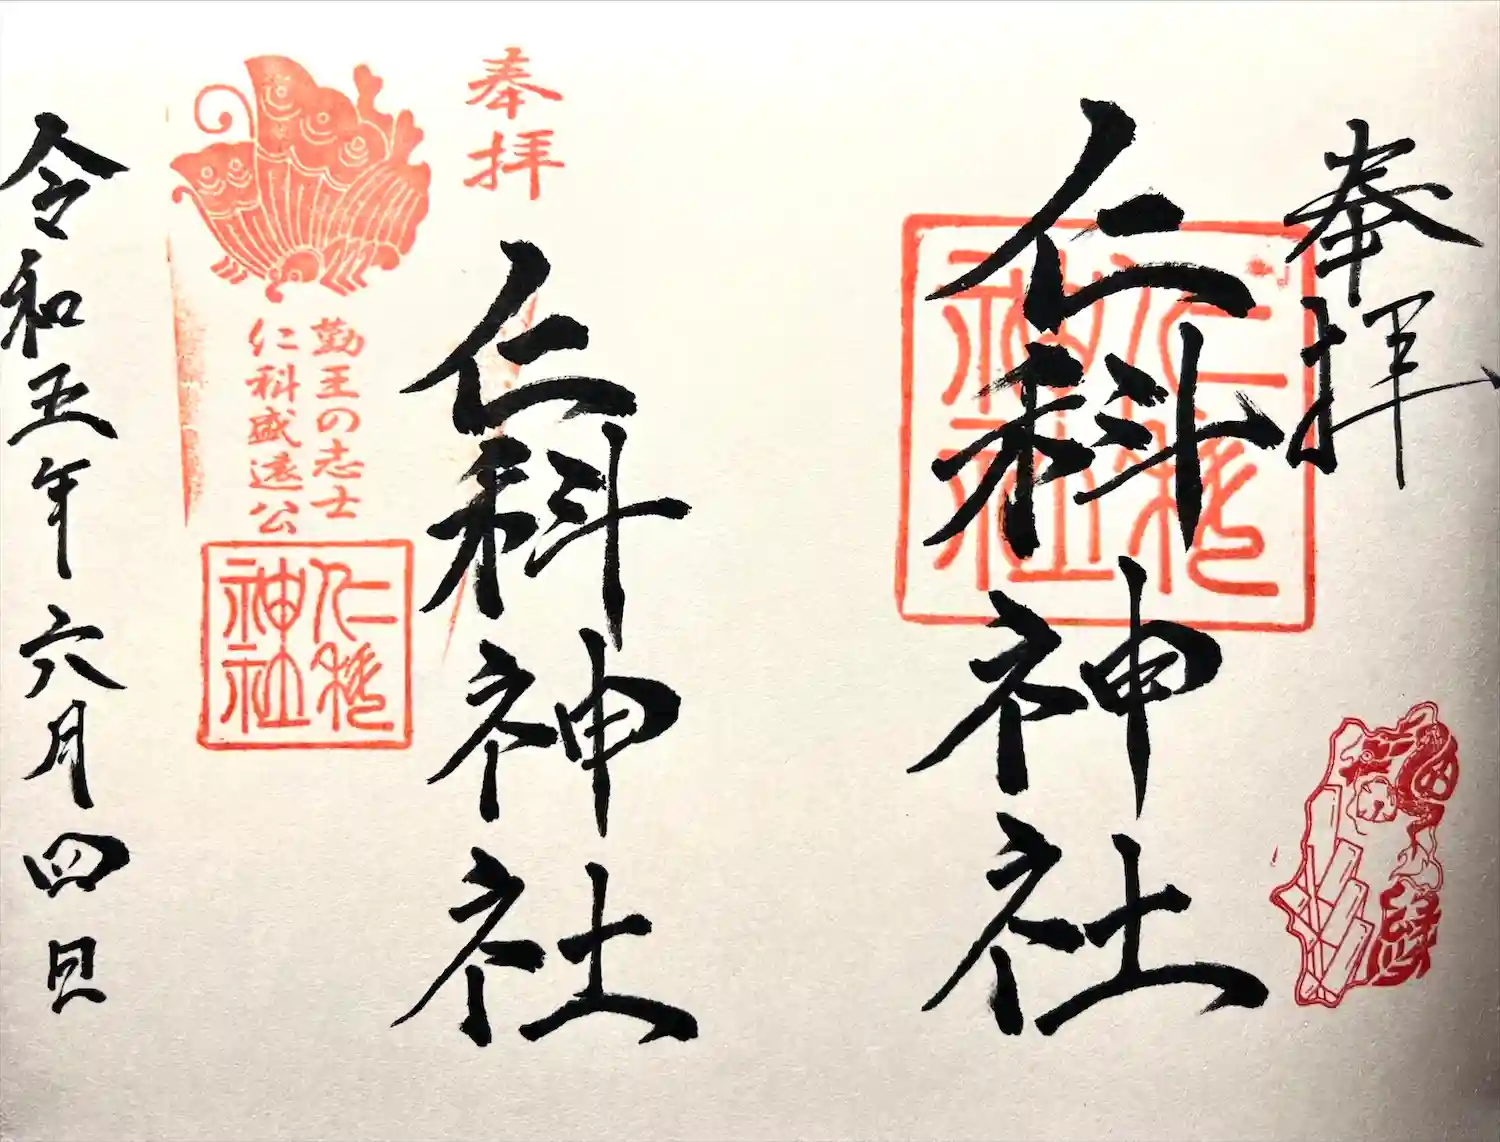 奉拝
仁科神社
仁科
神社
奉拝
仁科神社
勤王の志士
仁科盛遠公
仁科
神社
令和五年六月四日